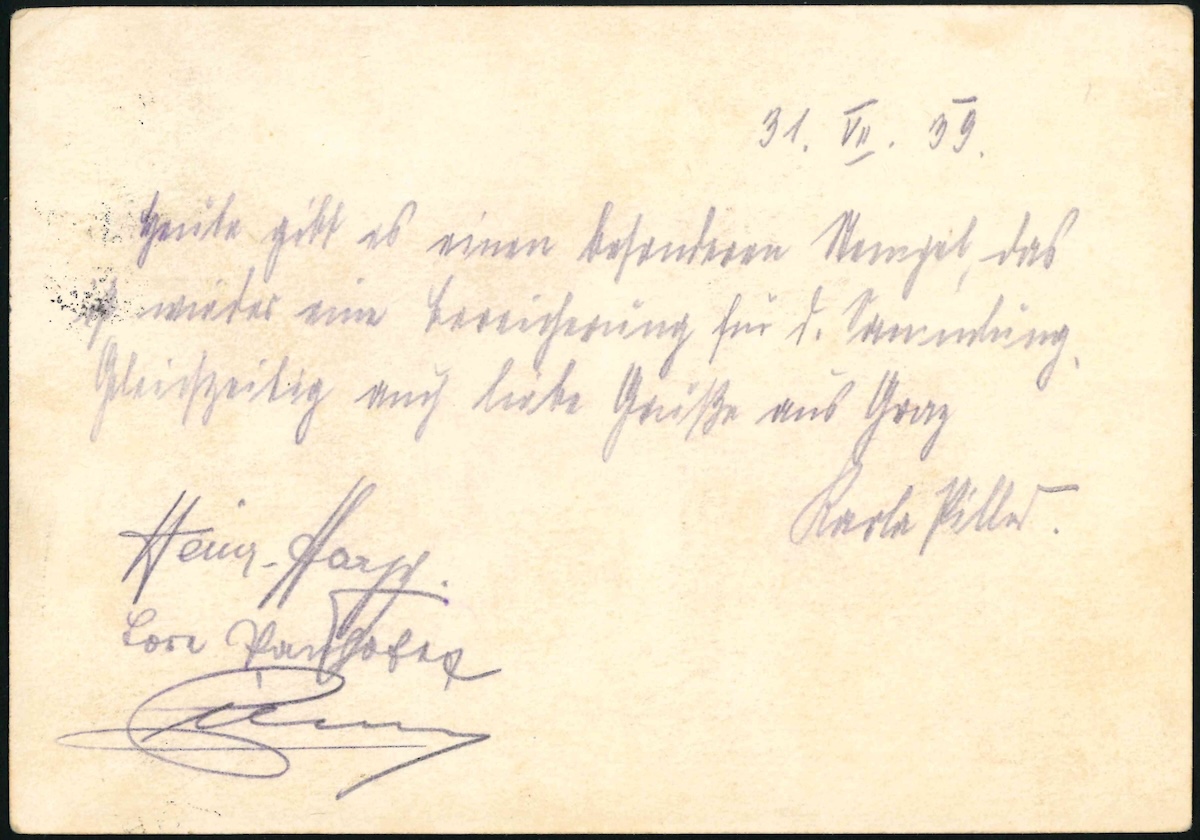 31. VII. 39.
Heute gibt es einen besonderen Stempel, das
ist wieder eine Bereicherung für d. Sammlung.
Gleichzeitig auch liebe Grüße aus Graz
Karla Piller.
Heinz
Lore